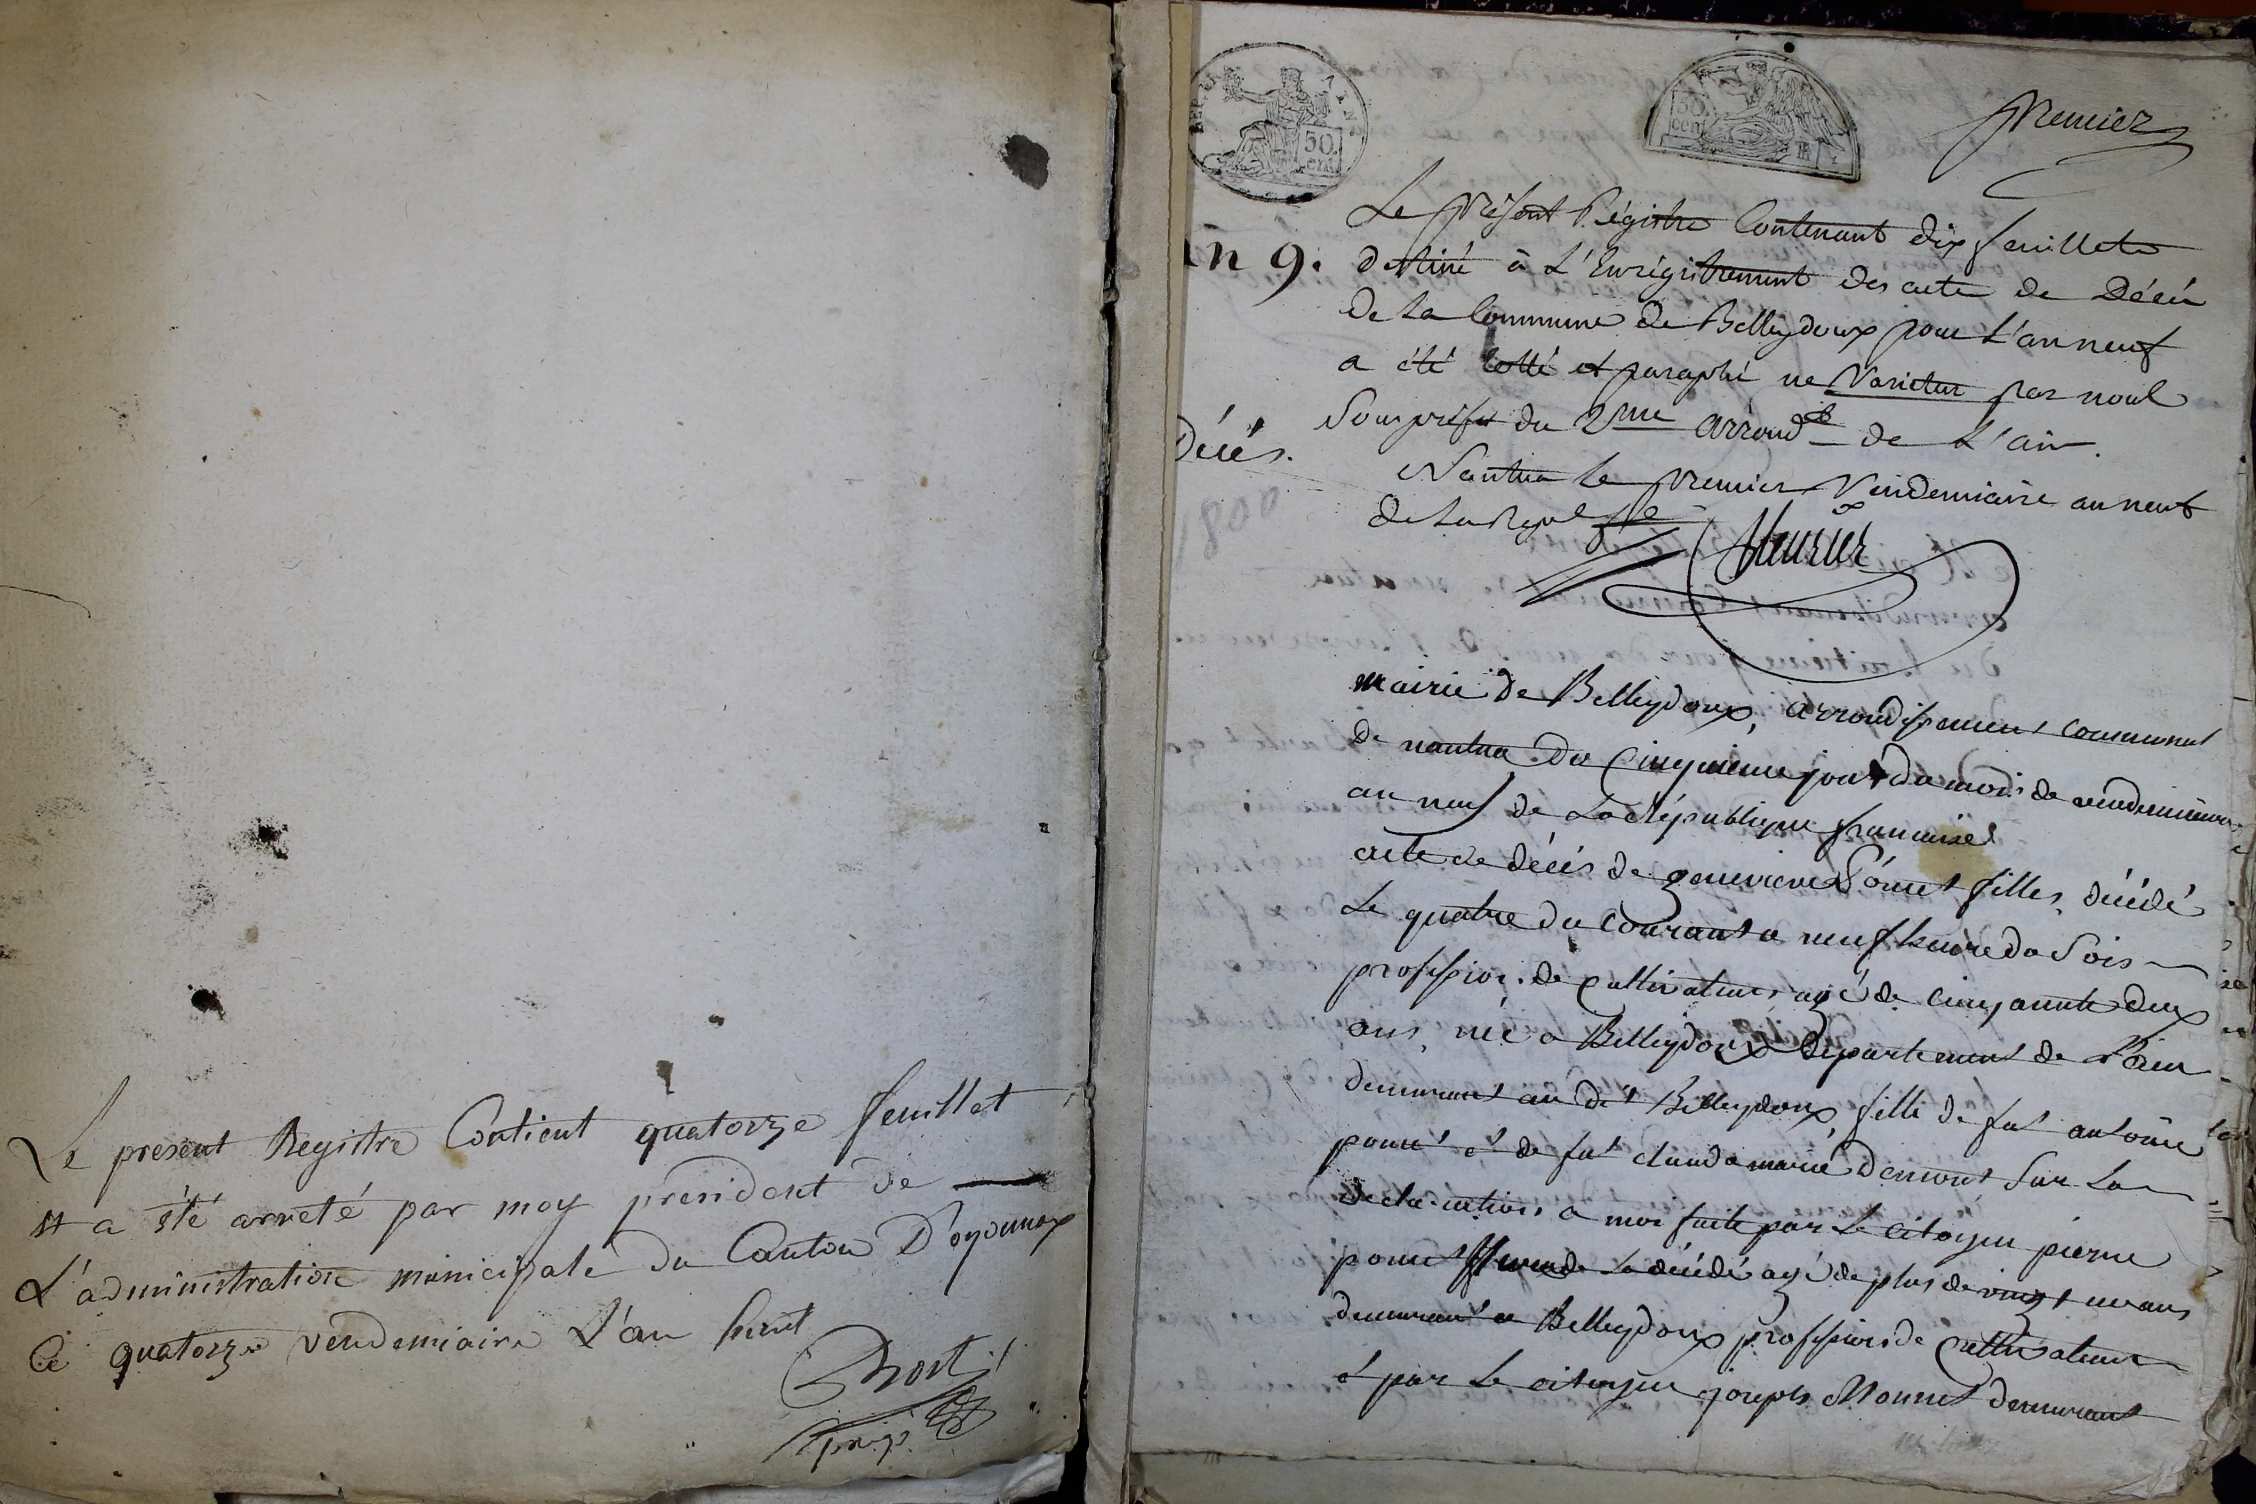 Le present Registre Contient quatorze feuillet
et a été arreté par moy president de
L'administration municipale du Canton D'oyonnax
Ce quatorze vendemiaire L'an huit
presid
50.
cent.
50
cent
RF
Premier
Le présent Régistre Contenant dix feuillets
an 9. destiné à L'Enrégistrement des acte de Décès
de La Commune de Belleydoux pour L'an neuf
a été Cotté et paraphé ne Varietur par nous
Souspréfet du 2me arrond.t de L'ain.
Décés.
Nantua le premier Vendemiaire an neuf
1800
de La Repub.
mairie de Belleydoux, arrondissement communal
de nantua du Cinquieme jour du mois de vendemiaire
an neuf de La République francaise
acte de décés de genevieve Ponnet fille, décédé
Le quatre du courant a neuf heure du Soir
profession de Cultivateur agé de cinquante deux
ans, né a Belleydoux Département de L'ain
demeurant au dit Belleydoux fille de fut antoine
ponnet et de fut clauda marie demont Sur La
declaration a moi faite par Le citoyen pierre
ponnet La décédé agé de plus de vingt un ans
demeurant a Belleydoux profession de Cultivateur
et par Le citoyen joseph Monnet demeurant